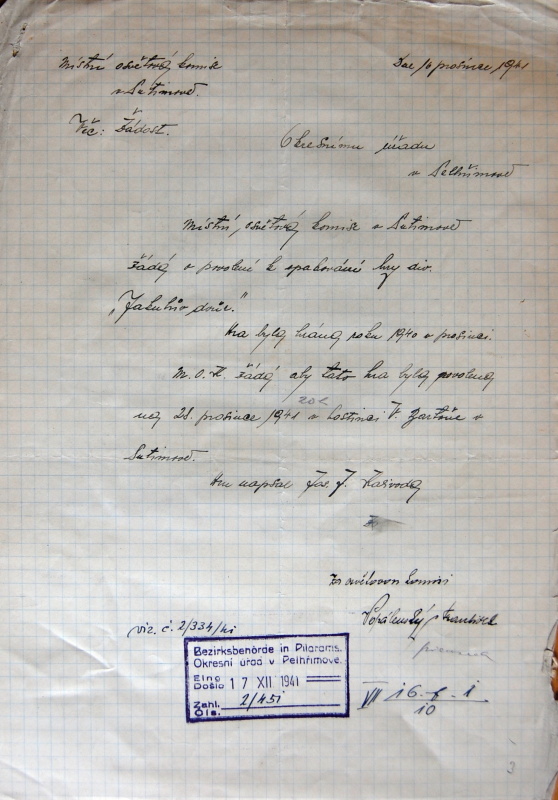 Místní osvětová komise
v Sutimově.
Dne 16 prosince 1941
Věc: Žádost.
Okresnímu úřadu
v Pelhřimově
Místní, osvětová komise v Sutimově
žádá o povolení k opakování hry div.
„Jakubův dvůr."
Hra byla hrána roku 1940 v prosinci.
M.O.K. žádá aby tato hra byla povolena
20 h.
na 28. prosince 1941 v hostinci F. v
Sutimově.
Hru napsal Jos. J.
Za osvětovou komisi
František
viz. č. 2/334/ki
Bezirksbehörde in Pilgrams.
Okresní úřad v Pelhřimově.
Eing
Došlo 17 XII 1941
Zahl.
Čís. 2/451
VII 16-6-1
10
3